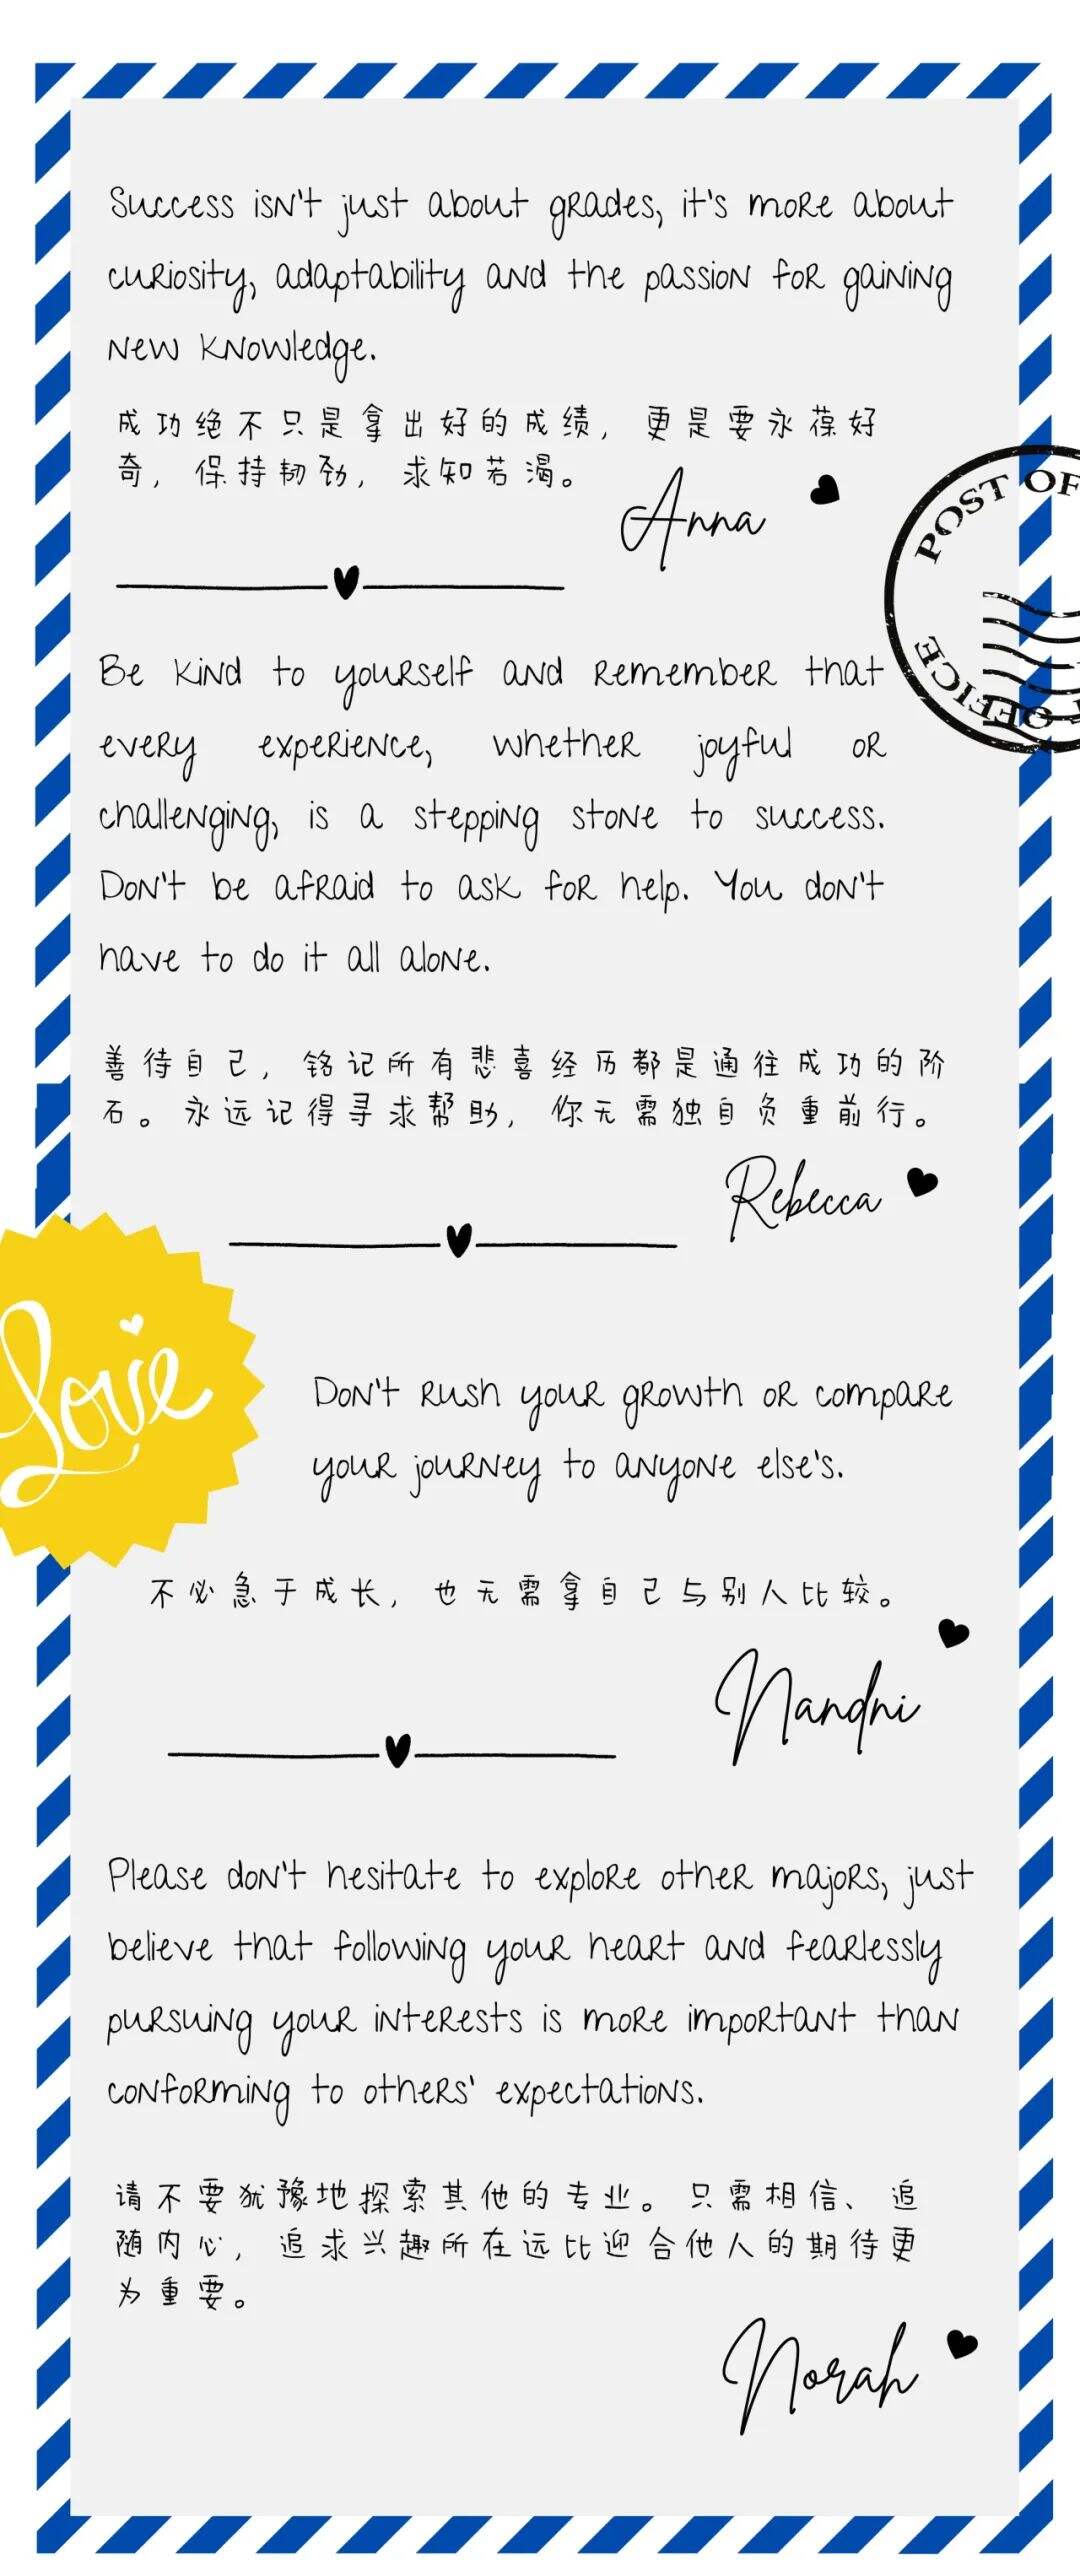 Success isn't just about grades, it's more about
curiosity, adaptability and the passion for gaining
new knowledge.
成功绝不只是拿出好的成绩，更是要永葆好
奇，保持韧劲，求知若渴。
Anna
POST OF
OFFICE
Be kind to yourself and remember that
every experience, whether joyful or
challenging, is a stepping stone to success.
Don't be afraid to ask for help. You don't
have to do it all alone.
善待自己，铭记所有悲喜经历都是通往成功的阶
石。永远记得寻求帮助，你无需独自负重前行。
Rebecca
Love
Don't rush your growth or compare
your journey to anyone else's.
不必急于成长，也无需拿自己与别人比较。
Nandni
Please don't hesitate to explore other majors, just
believe that following your heart and fearlessly
pursuing your interests is more important than
conforming to others' expectations.
请不要犹豫地探索其他的专业。只需相信、追
随内心，追求兴趣所在远比迎合他人的期待更
为重要。
Norah